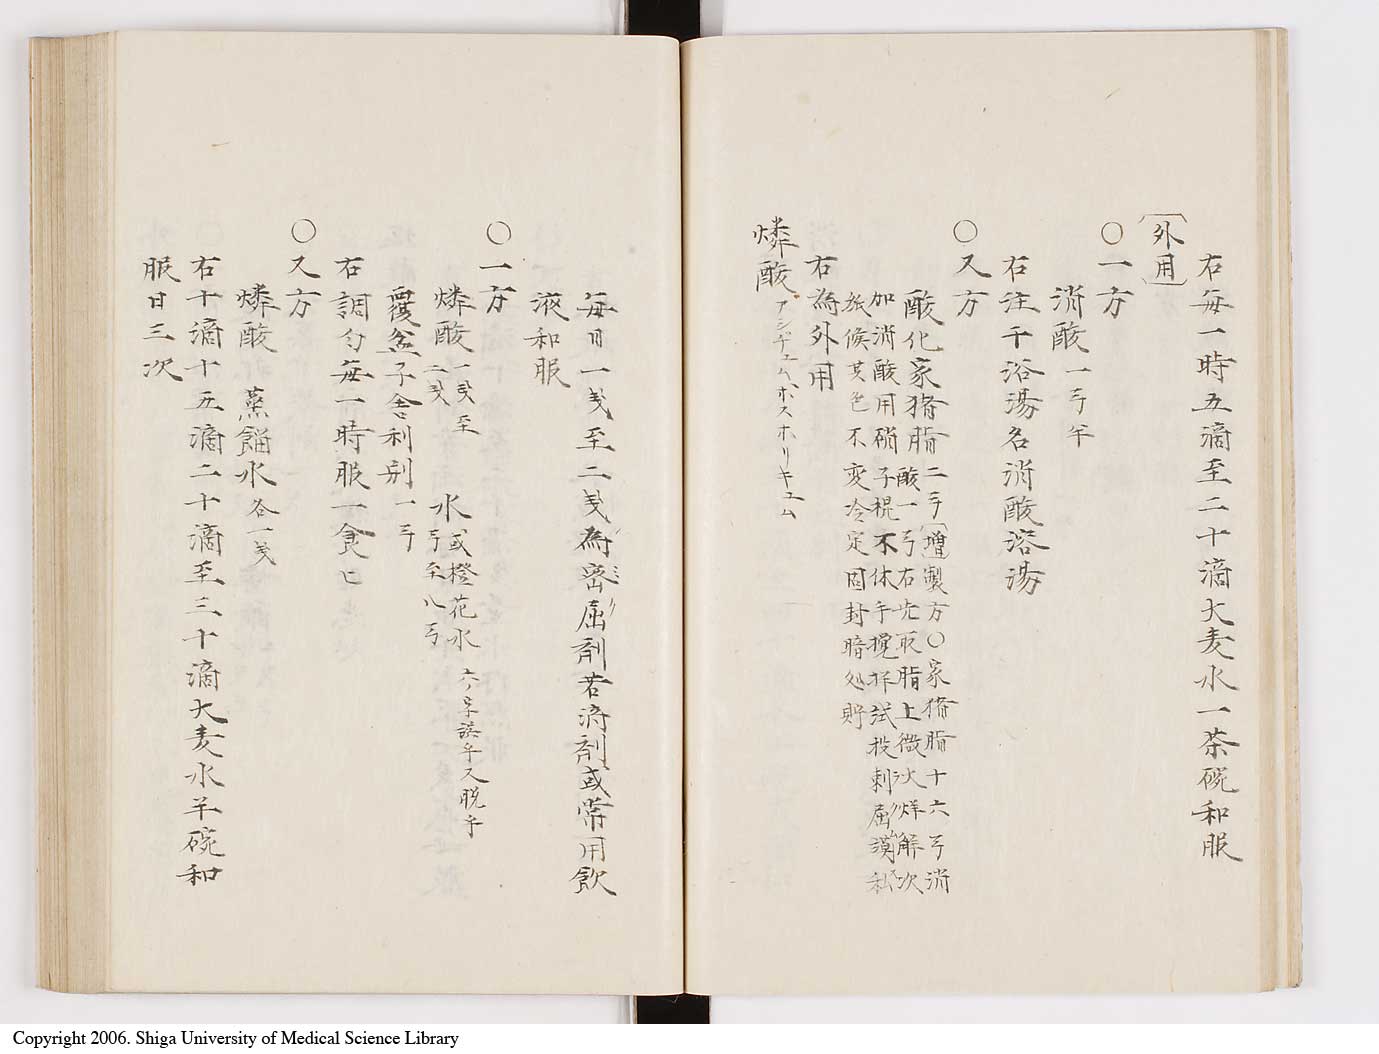 右每一時五滴至二十滴大麦水一茶碗和服
〔外用〕
〇一方
消酸一弓半
右注于浴湯名消酸浴湯
〇又方
酸化家猪脂二弓〔増製方〇家猪脂十六弓消
酸一弓右先取脂上微火烊解次
加消酸用硝子棍不休手攪拌試投刺屈謨私
旅候其色不変冷定固封暗処貯
右為外用
燐酸アシデュム、ホスホリキュム
每日一戔至二戔為密屈剤若済剤或常用飲
液和服
〇一方
燐酸一戔至二戔 水或橙花水弓至八弓
覆盆子舎利別一弓
右調匀每一時服一食匕
〇又方
燐酸 蒸餾水各一戔
右十滴十五滴二十滴至三十滴大麦水半碗和
服日三次
Copyright 2006. Shiga University of Medical Science Library